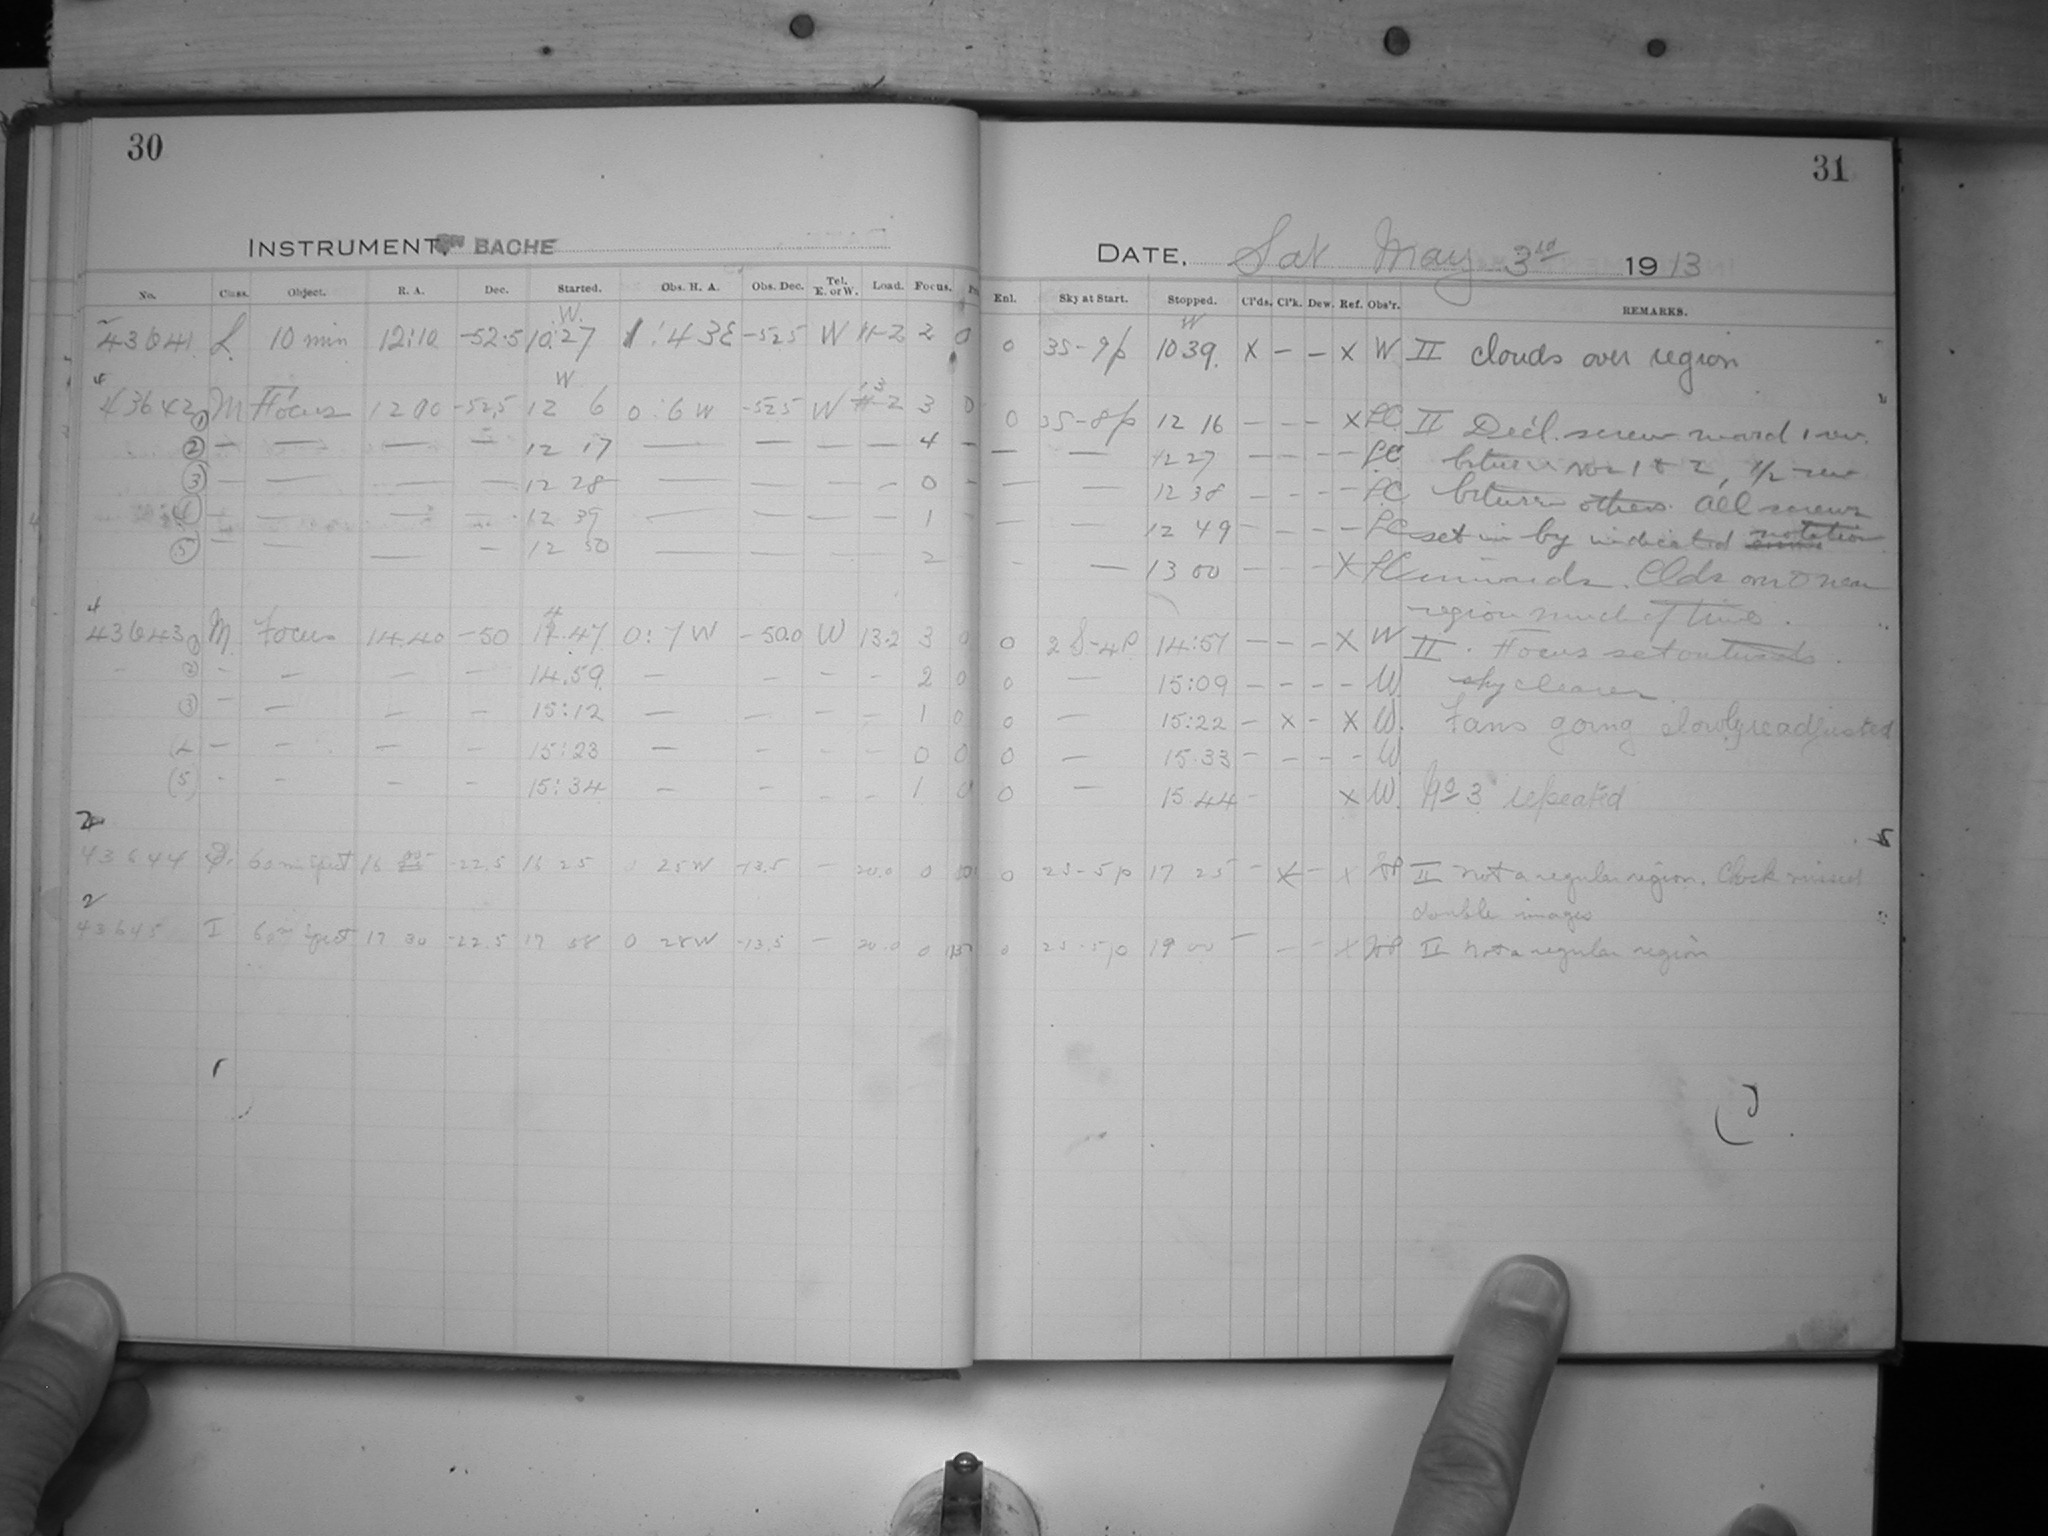 30
INSTRUMENT. BACHE
No. Class. Object. R. A. Dec. Started. Obs. H. A. Obs. Dec. Tel. E. or W. Load. Focus.
W.
43641 L 10 min 12:10 -52.5 10:27 1:43E -52.5 W 2 0
W
43642 ① M Focus 1200 -52.5 12 6 0:6 W -52.5 W 3 0
② — — — — 12 17 — — — — 4 —
③ — — — — 12 28 — — — — 0 -
④ — — — — 12 39 — — — — 1 -
⑤ — — — — 12 50 — — — — 2
43643 ① M Focus 14.40 -50 14.47 0:7 W -50.0 W 13.2 3 0
② — — — — 14.59 — — — — 2 0
③ — — — — 15:12 — — — — 1 0
— — — — 15:23 — — — — 0 0
(5) - - — — 15:34 — — — — 1 0
43644 60m spect 16 -22.5 16 25 0 25W -13.5 — 20.0 0
2
43645 I 60m spect 17 30 -22.5 17 58 0 28W -13.5 — 20.0 0
31
DATE. Sat May 3rd 1913
Enl. Sky at Start. Stopped. Cl'ds. Cl'k. Dew. Ref. Obs'r. REMARKS.
W
0 3S-9p 10 39. X — — X W II clouds over region
0 3S-8p 12 16 — — — X LC II Decl. screw moved 1 rev.
— — 12 27 — — — — LC between nos 1 & 2, 1/2 rev
— — 12 38 — — — — LC between others. All screws
— — 12 49 — — — — LC set in by indicated notation
- — 13 00 — — — X LC inwards. Clds on & near
region much of time.
0 2S-4p 14:57 — — — X W II. Focus set outwards.
0 — 15:09 — — — — W. sky clearer
0 — 15:22 — x — X W. Fans going slowly readjusted
0 — 15.33 — — — — W
0 — 15.44 — X W. No 3 repeated
0 2S-5p 17 25 — X — X II not a regular region. Clock missed
double images
0 2S-5p 19 00 — — — X II not a regular region